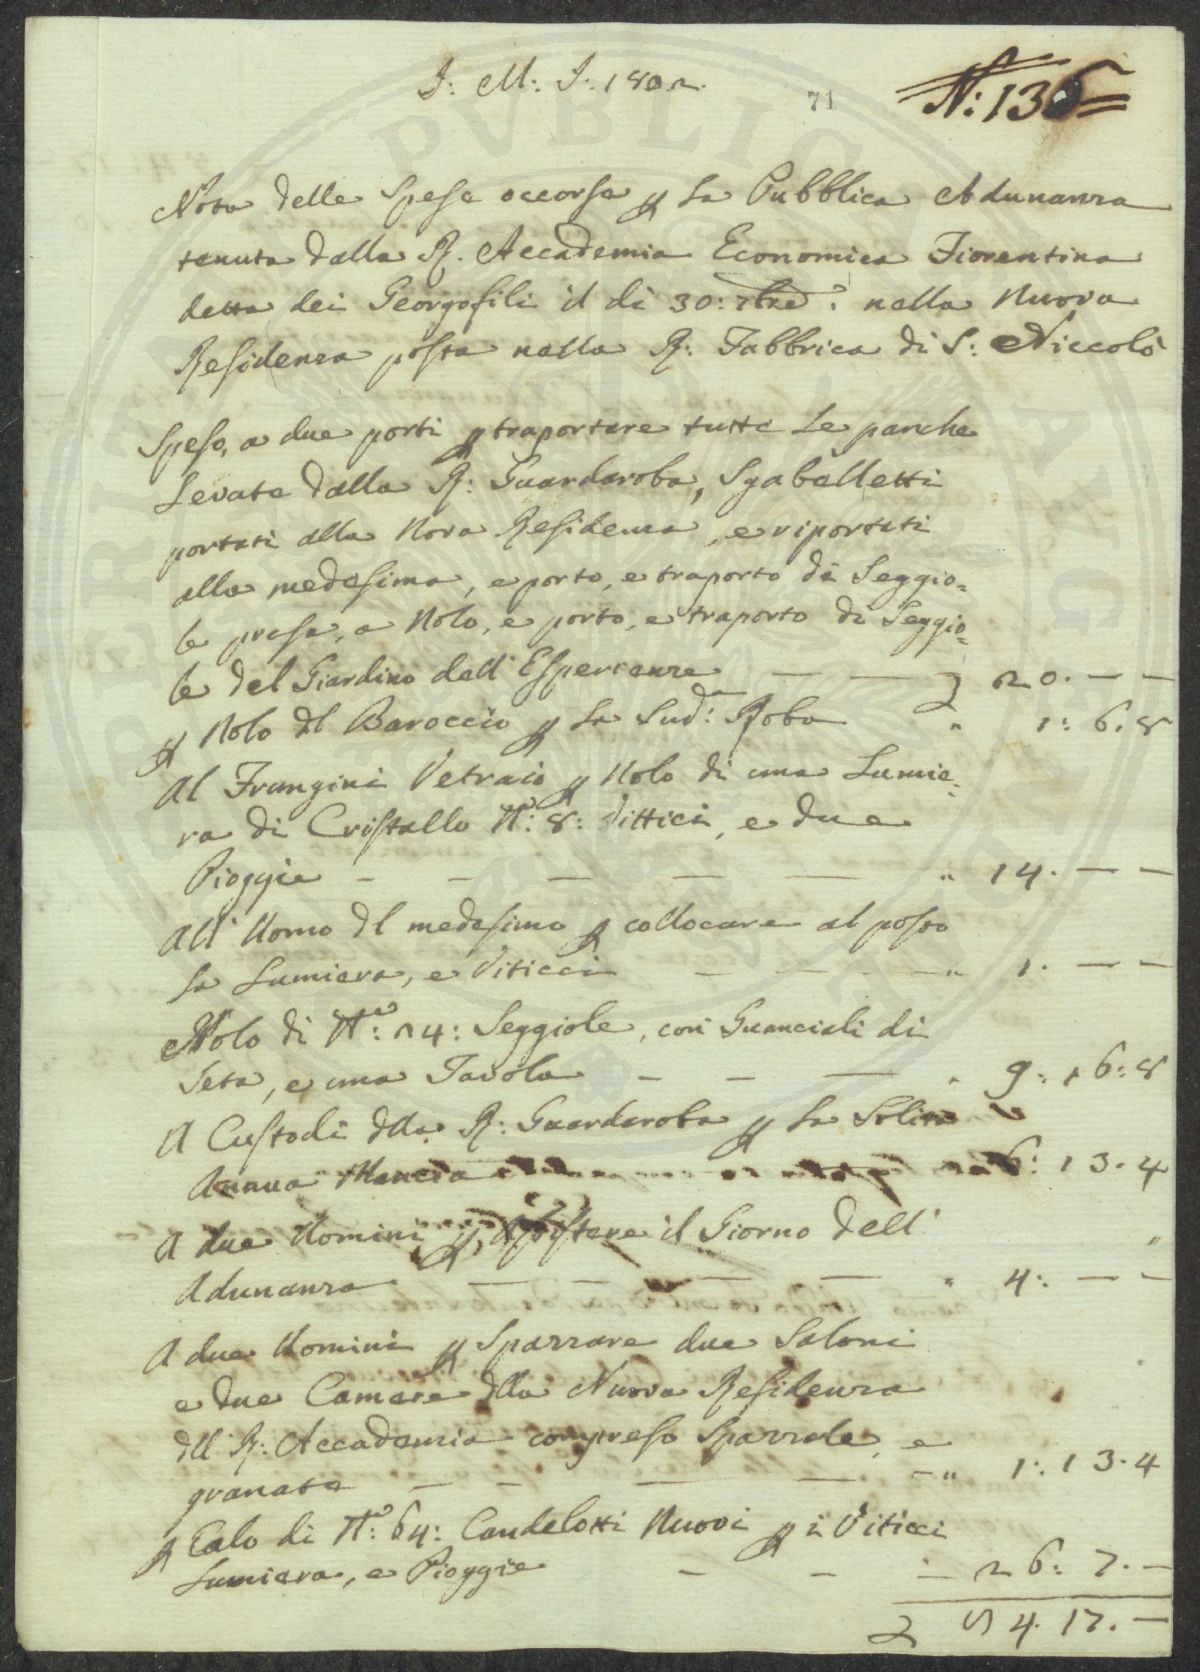 J: M: J: 1802.
71
N: 136
Nota delle Spese occorse p la Pubblica Adunanza
tenuta dalla R. Accademia Economica Fiorentina
detta dei Georgofili il dì 30: 7bre: nella Nuova
Residenza posta nella R: Fabbrica di S: Niccolò
Speso, a due porti p traportare tutte Le panche
Levate dalla R: Guardaroba, Sgabelletti
portati alla Nova Residenza, e riportati
alla medesima, e porto, e traporto di Seggio=
le prese, a Nolo, e porto, e traporto di Seggio=
le del Giardino dell' Esperienze — — } 20. — —
p Nolo dl Baroccio p La Sudª: Roba " 1: 6. 8
Al Frangini Vetraio p Nolo di una Lumie=
ra di Cristallo Nº: 8: Vittici, e due
Pioggie — — — — — " 14. — —
All' Uomo dl medesimo p collocare al posto
La Lumiera, e Viticci — — — " 1. — —
Nolo di Nº: 24: Seggiole, con Guanciali di
Seta, e una Tavola — — — " 9: 16: 8
A Custodi dlla R: Guardaroba p La Solita
Annua Mancia 6: 13. 4
A due Uomini p Assistere il Giorno dell'
Adunanza — — — — " 4: — —
A due Uomini p Spazzare due Saloni
e due Camere dlla Nuova Residenza
dll R: Accademia compreso Spazzole, e
granate — — — — — " 1: 13. 4
p Calo di Nº: 64: Candelotti Nuovi p i Viticci
Lumiera, e Pioggie — — — 26: 7. —
84. 17. —